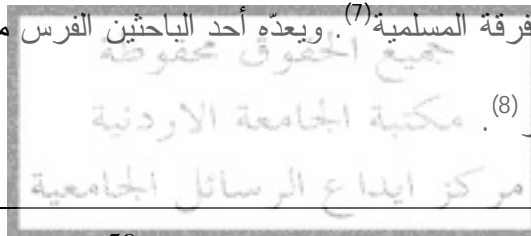 فرقة المسلمية(7). ويعدّه أحد الباحثين الفرس
جميع الحقوق محفوظة
(8).
مكتبة الجامعة الاردنية
مركز ايداع الرسائل الجامعية